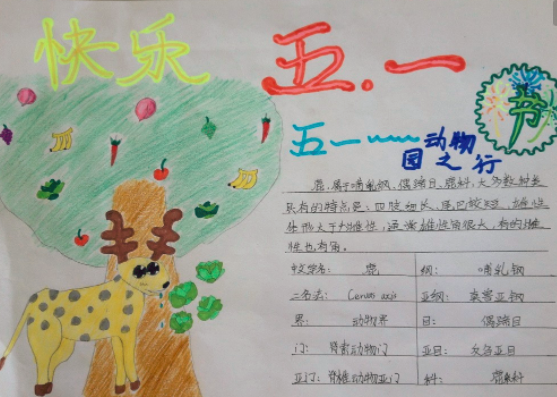 快乐 五.一
节
五一 动物
园之行
鹿,属于哺乳钢、偶蹄目、鹿科,大多数种类
具有的特点是:四肢细长、尾巴较短,雄性
体形大于雌性,通常雄性有角,有的雌
性也有角。
中文学名: 鹿 纲: 哺乳钢
二名法: Cervus axis 亚纲: 真兽亚钢
界: 动物界 目: 偶蹄目
门: 脊索动物门 亚目:
亚门: 脊椎动物亚门 科: 鹿科